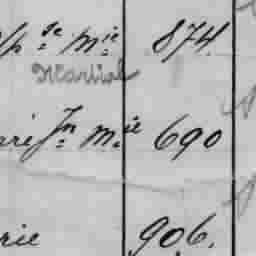 se Mie 874
Martial
Jn Mie 690
rie 906.